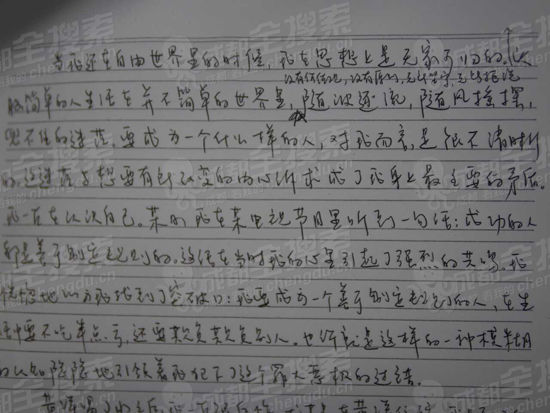 当我还在自由世界里的时候，我在思想上是无家可归的。以
没有信仰，没有原则，无所学，无所适从
极简单的人生活在并不简单的世界里，随波逐流，随风摇摆，
的迷茫。要成为一个什么样的人，对我而言，是很不清晰
的。这迷茫与想要有所改变的内心诉求成了我身上最主要的矛盾。
我一直在认识自己。某日我在某电视节目里听到一句话：成功的人
都是善于制定规则的。这话在当时我的心里引起了强烈的共鸣。我
地以为我找到了突破口：我要成为一个善于制定规则的人，在生
活中要不吃半点亏，还要欺负欺负别人。也许就是这样的一种模糊
的认知隐隐地引领着我犯下了这个罪大恶极的过错。
成都全搜索